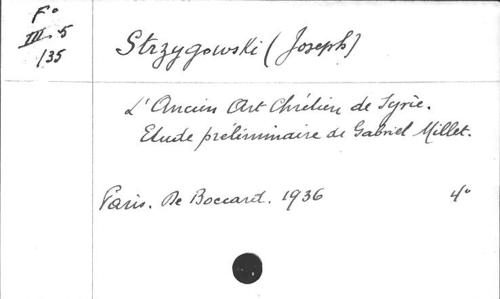 F°
III.5
/35
Strzygowski (Joseph)
L'Ancien Art Chrétien de Syrie.
Etude préliminaire de Gabriel Millet.
Paris. De Boccard. 1936 4°